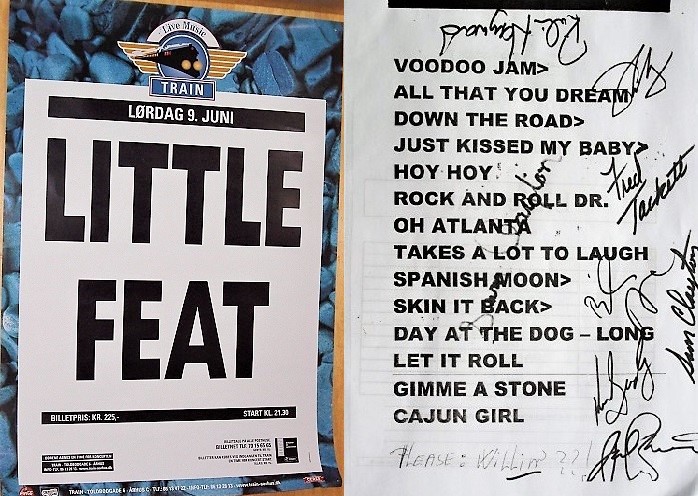 Live Music
TRAIN
LØRDAG 9. JUNI
LITTLE
FEAT
BILLETPRIS: KR. 225,-
START KL. 21.30
TRAIN - TOLDBODGADE 6 - ÅRHUS C
VOODOO JAM>
ALL THAT YOU DREAM
DOWN THE ROAD>
JUST KISSED MY BABY>
HOY HOY
ROCK AND ROLL DR.
OH ATLANTA
TAKES A LOT TO LAUGH
SPANISH MOON>
SKIN IT BACK>
DAY AT THE DOG – LONG
LET IT ROLL
GIMME A STONE
CAJUN GIRL
PLEASE: WILLIN ??!
Richie Hayward
Fred
Tackett
Sam Clayton